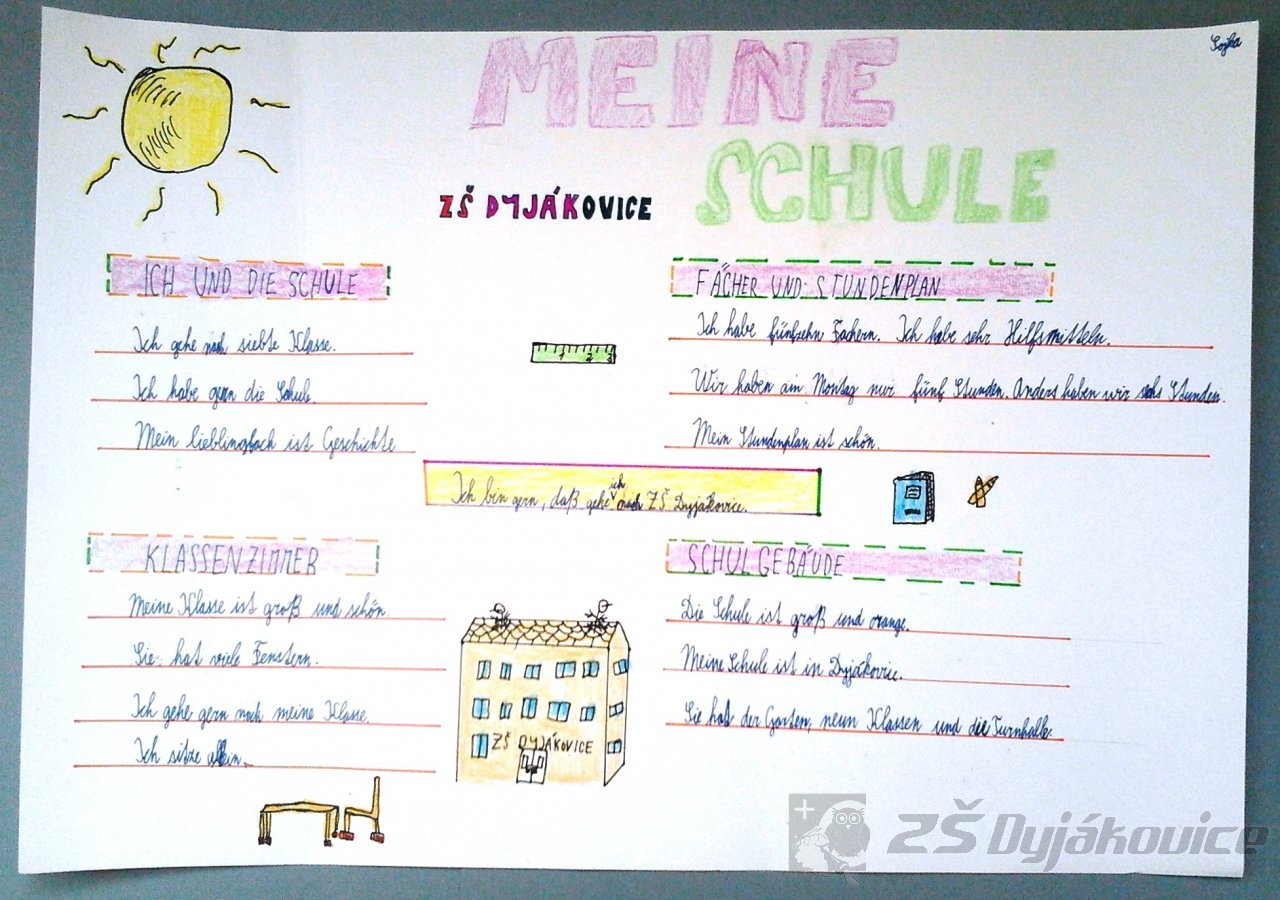 Sojka
MEINE
SCHULE
ZŠ DYJÁKOVICE
ICH UND DIE SCHULE
Ich gehe nach siebte Klasse.
Ich habe gern die Schule.
Mein lieblingsfach ist Geschichte
FÄCHER UND STUNDENPLAN
Ich habe fünfzehn Fachern. Ich habe sehr Hilfsmitteln.
Wir haben am Montag nur fünf Stunden. Anders haben wir sechs Stunden.
Mein Stundenplan ist schön.
1 2 3
ich
Ich bin gern, daß gehe nach ZŠ Dyjákovice.
KLASSENZIMMER
Meine Klasse ist groß und schön.
Sie hat viele Fenstern.
Ich gehe gern nach meine Klasse.
Ich sitze allein.
ZŠ DYJÁKOVICE
SCHULGEBÄUDE
Die Schule ist groß und orange.
Meine Schule ist in Dyjákovic.
Sie hat der Garten, neun Klassen und die Turnhalle.
ZŠ Dyjákovice